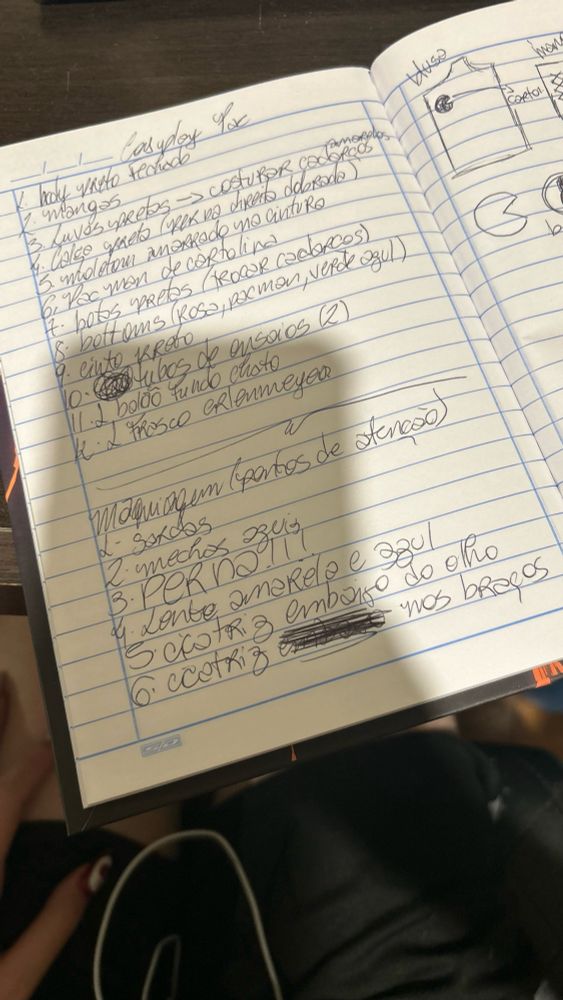 Cosplay Pac
1. body preto fechado
2. mangas
3. Luvas pretas → costurar cadarços amarelos
4. Calça preta (perna direita dobrada)
5. moletom amarrado na cintura
6. Pac man de cartolina
7. botas pretas (trocar cadarços)
8. bottoms (rosa, pacman, verde azul)
9. cinto preto
10. tubos de ensaios (2)
11. 1 balão fundo chato
12. 1 frasco erlenmeyer
maquiagem (pontos de atenção)
1- sardas
2. mechas azuis
3. PERNA!!!
4. Lente amarela e azul
5 cicatriz embaixo do olho
6. cicatriz nos braços
blusa
cartol